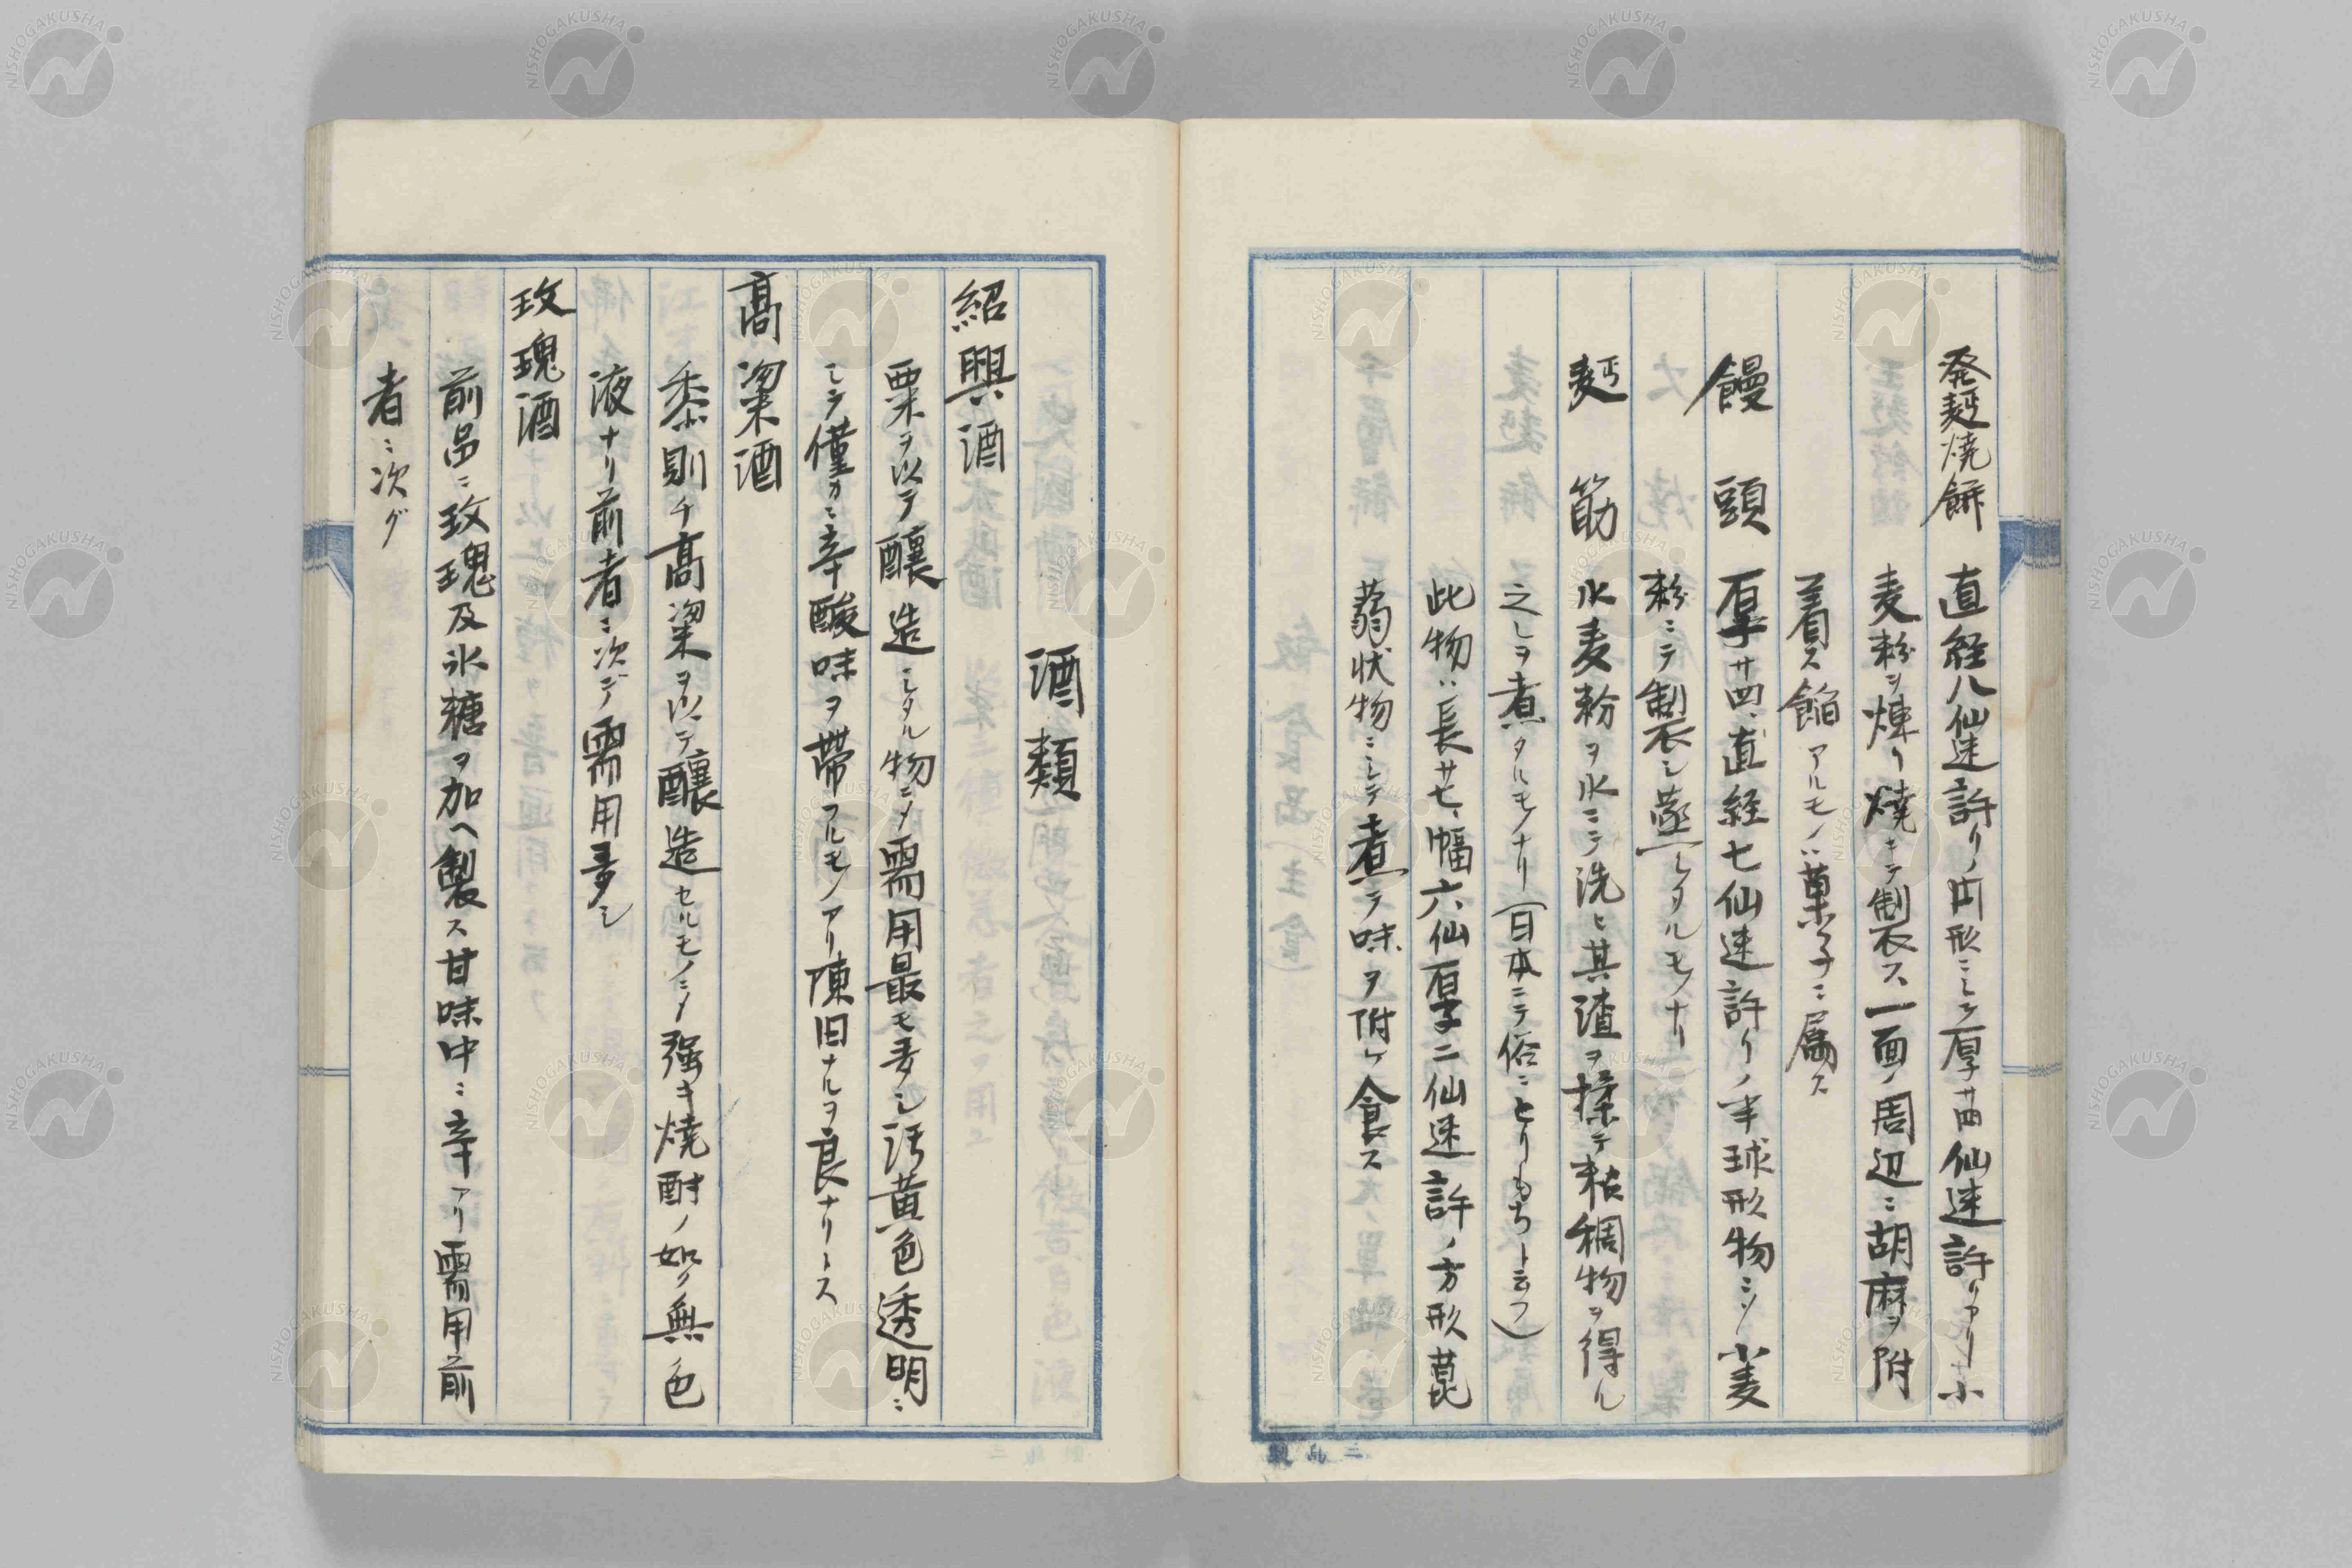 発麪焼餅 直経八仙迷許リノ円形ニシテ厚サ四仙迷許リアリ小
麦粉ヲ煉リ焼キテ製ス一面ノ周辺ニ胡麻ヲ附
着ス餡アルモノハ菓子ニ属ス
饅頭 厚サ四、直経七仙迷許リノ半球形物ニシテ小麦
粉ニテ製シ蒸シタルモノナリ
麪筋 水麦粉ヲ水ニテ洗ヒ其渣ヲ揉テ粘稠物ヲ得ル
之レヲ煮タルモノナリ(日本ニテ俗ニとりもちト云フ)
此物ハ長サ七、幅六仙厚二仙迷許ノ方形菎
蒻状物ニシテ煮テ味ヲ附ケ食ス
酒類
紹興酒
粟ヲ以テ醸造シタル物ニメ需用最モ多シ汚黄色透明ニ
シテ僅カニ辛酸味ヲ帯フルモノアリ陳旧ナルヲ良ナリトス
高粱酒
黍則チ高粱ヲ以テ醸造セルモノニメ強キ焼酎ノ如ク無色
液ナリ前者ニ次デ需用多シ
玫瑰酒
前品ニ玫瑰及氷糖ヲ加ヘ製ス甘味中ニ辛アリ需用前
者ニ次グ
NISHOGAKUSHA